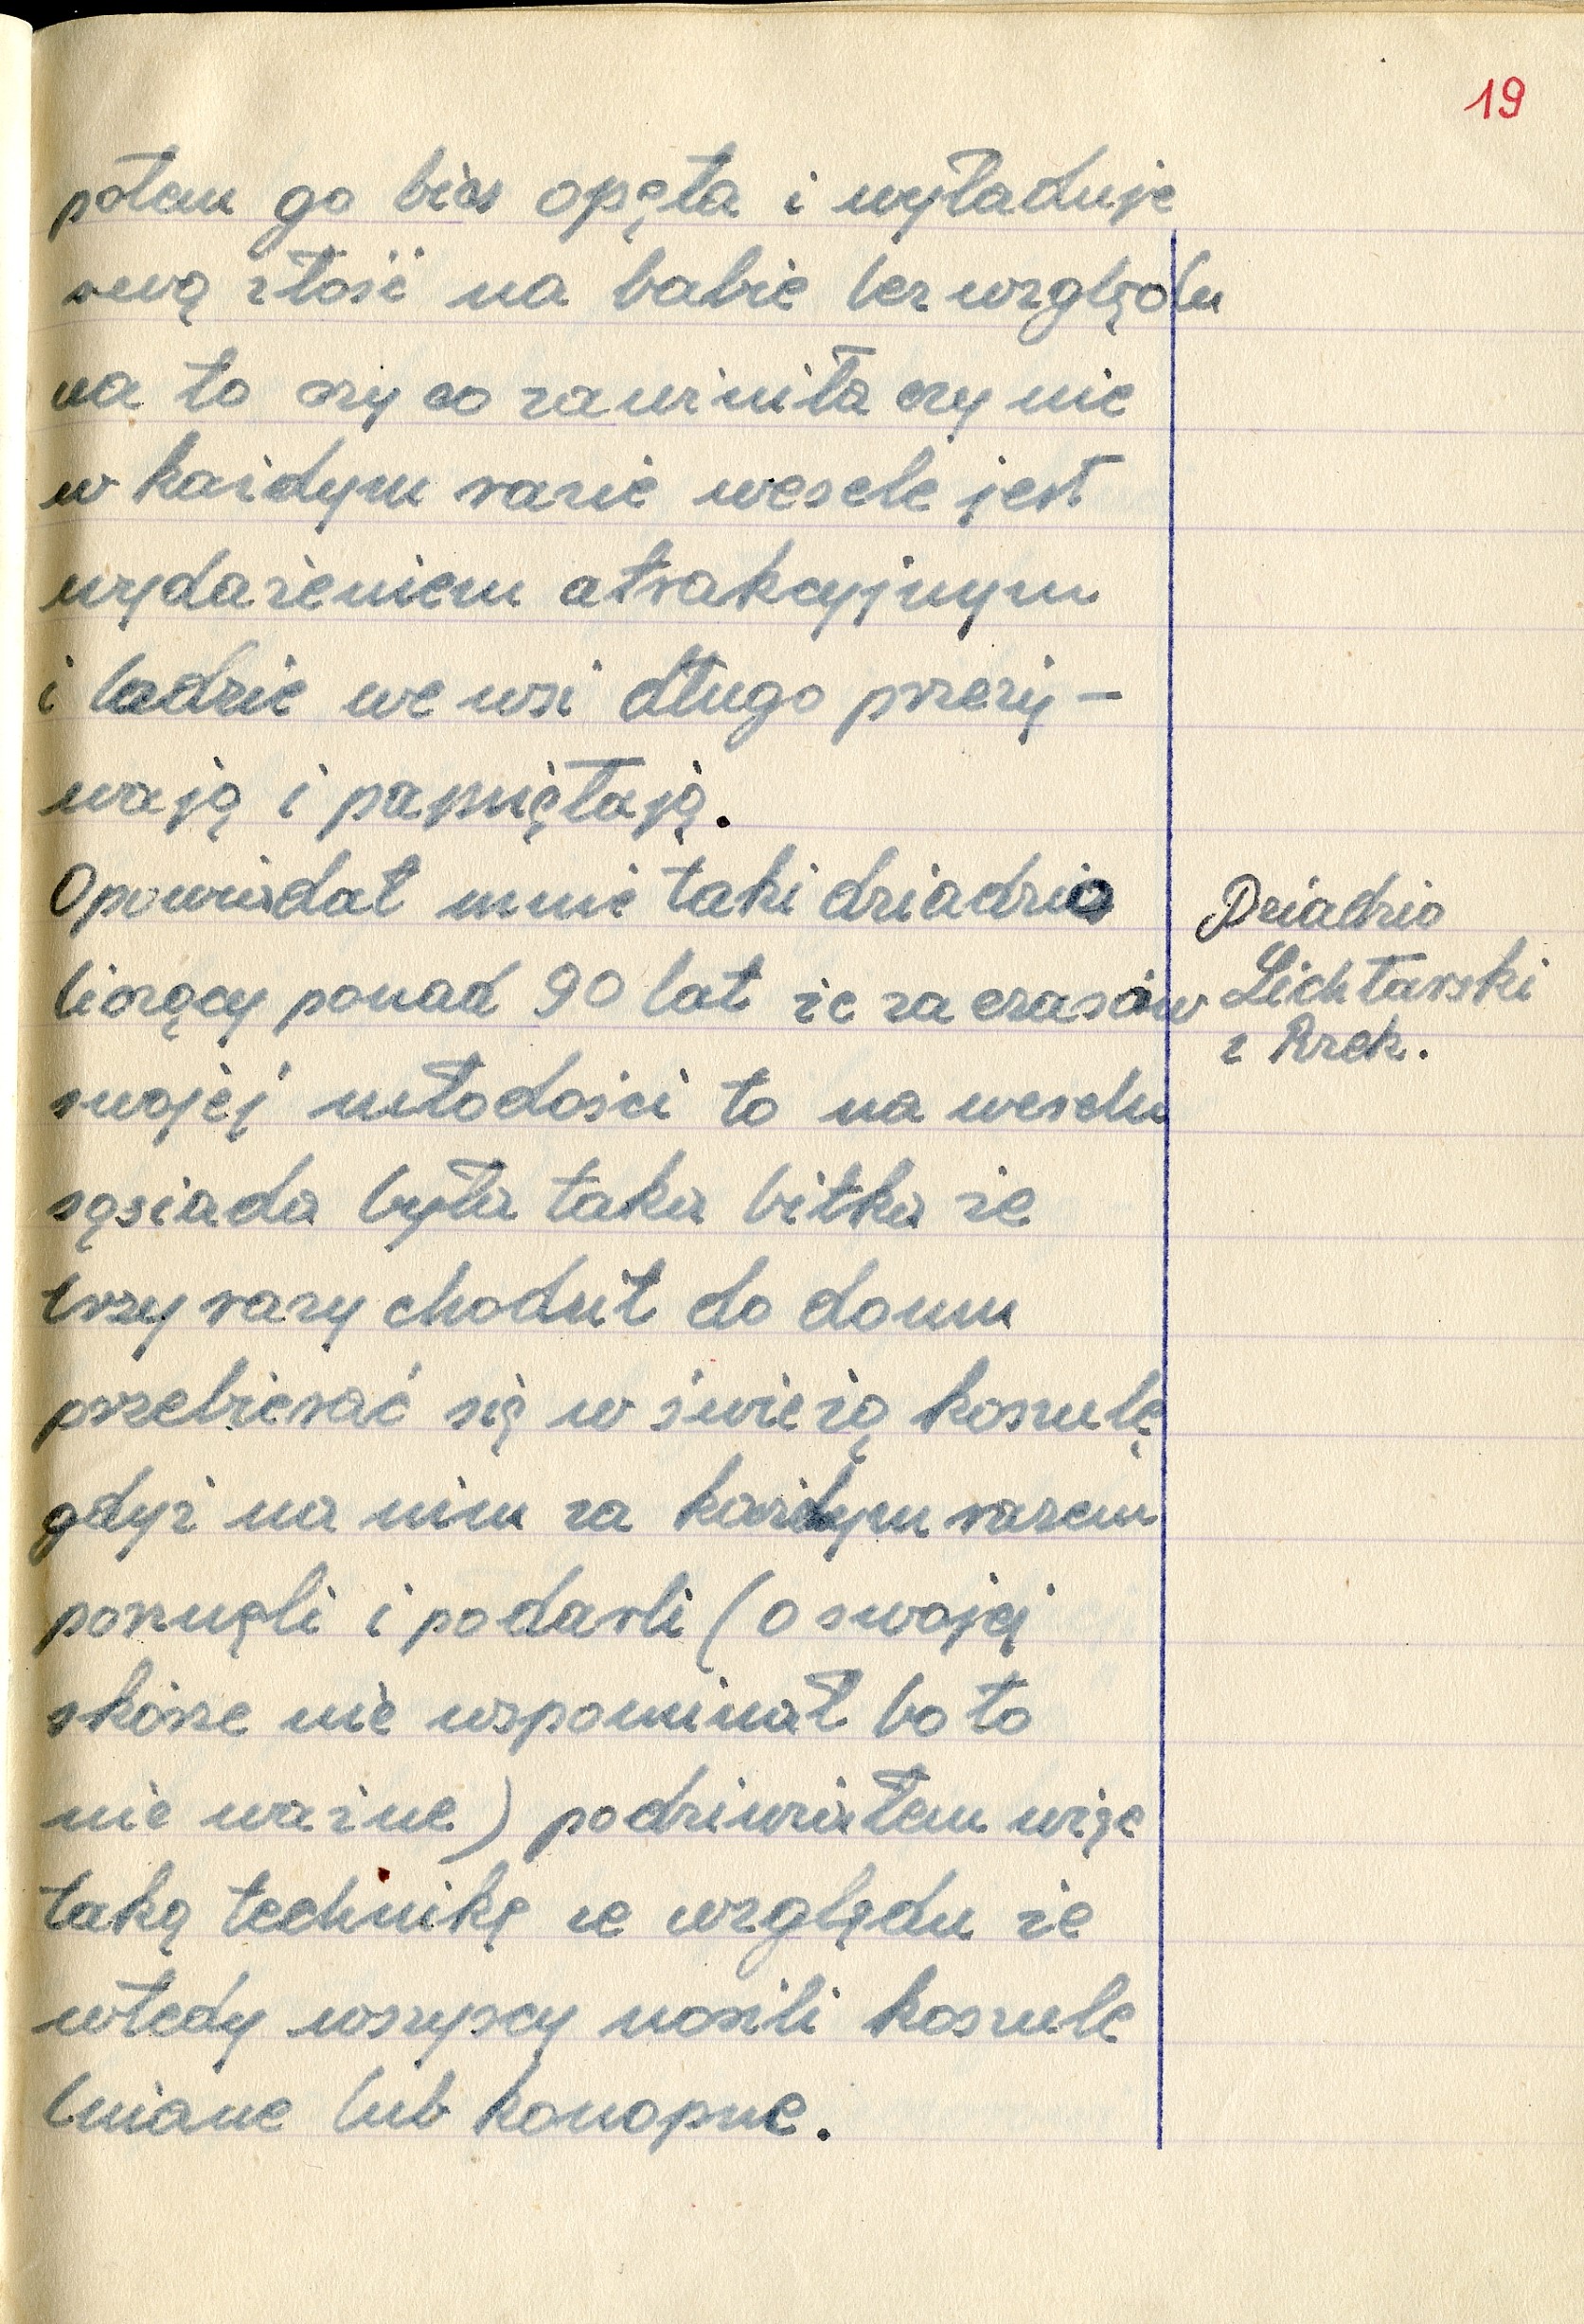 19
potem go bies opęta i wyładuje
swą złość na babie bez względu
na to czy co zawiniła czy nie
w każdym razie wesele jest
wydażeniem atrakcyjnym
i ludzie we wsi długo przeży-
wają i pamiętają.
Opowiadał mnie taki dziadzio
liczący ponad 90 lat że za czasów
swojej młodości to na weselu
sąsiada była taka bitka że
trzy razy chodził do domu
przebierać się w świeżą koszulę
gdyż na nim za każdym razem
posznęli i podarli (o swojej
skórze nie wspominał bo to
nie ważne) podziwiałem więc
taką technikę ze względu że
wtedy wszyscy nosili koszule
lniane lub konopne.
Dziadzio
Lichtarski
z Rzek.